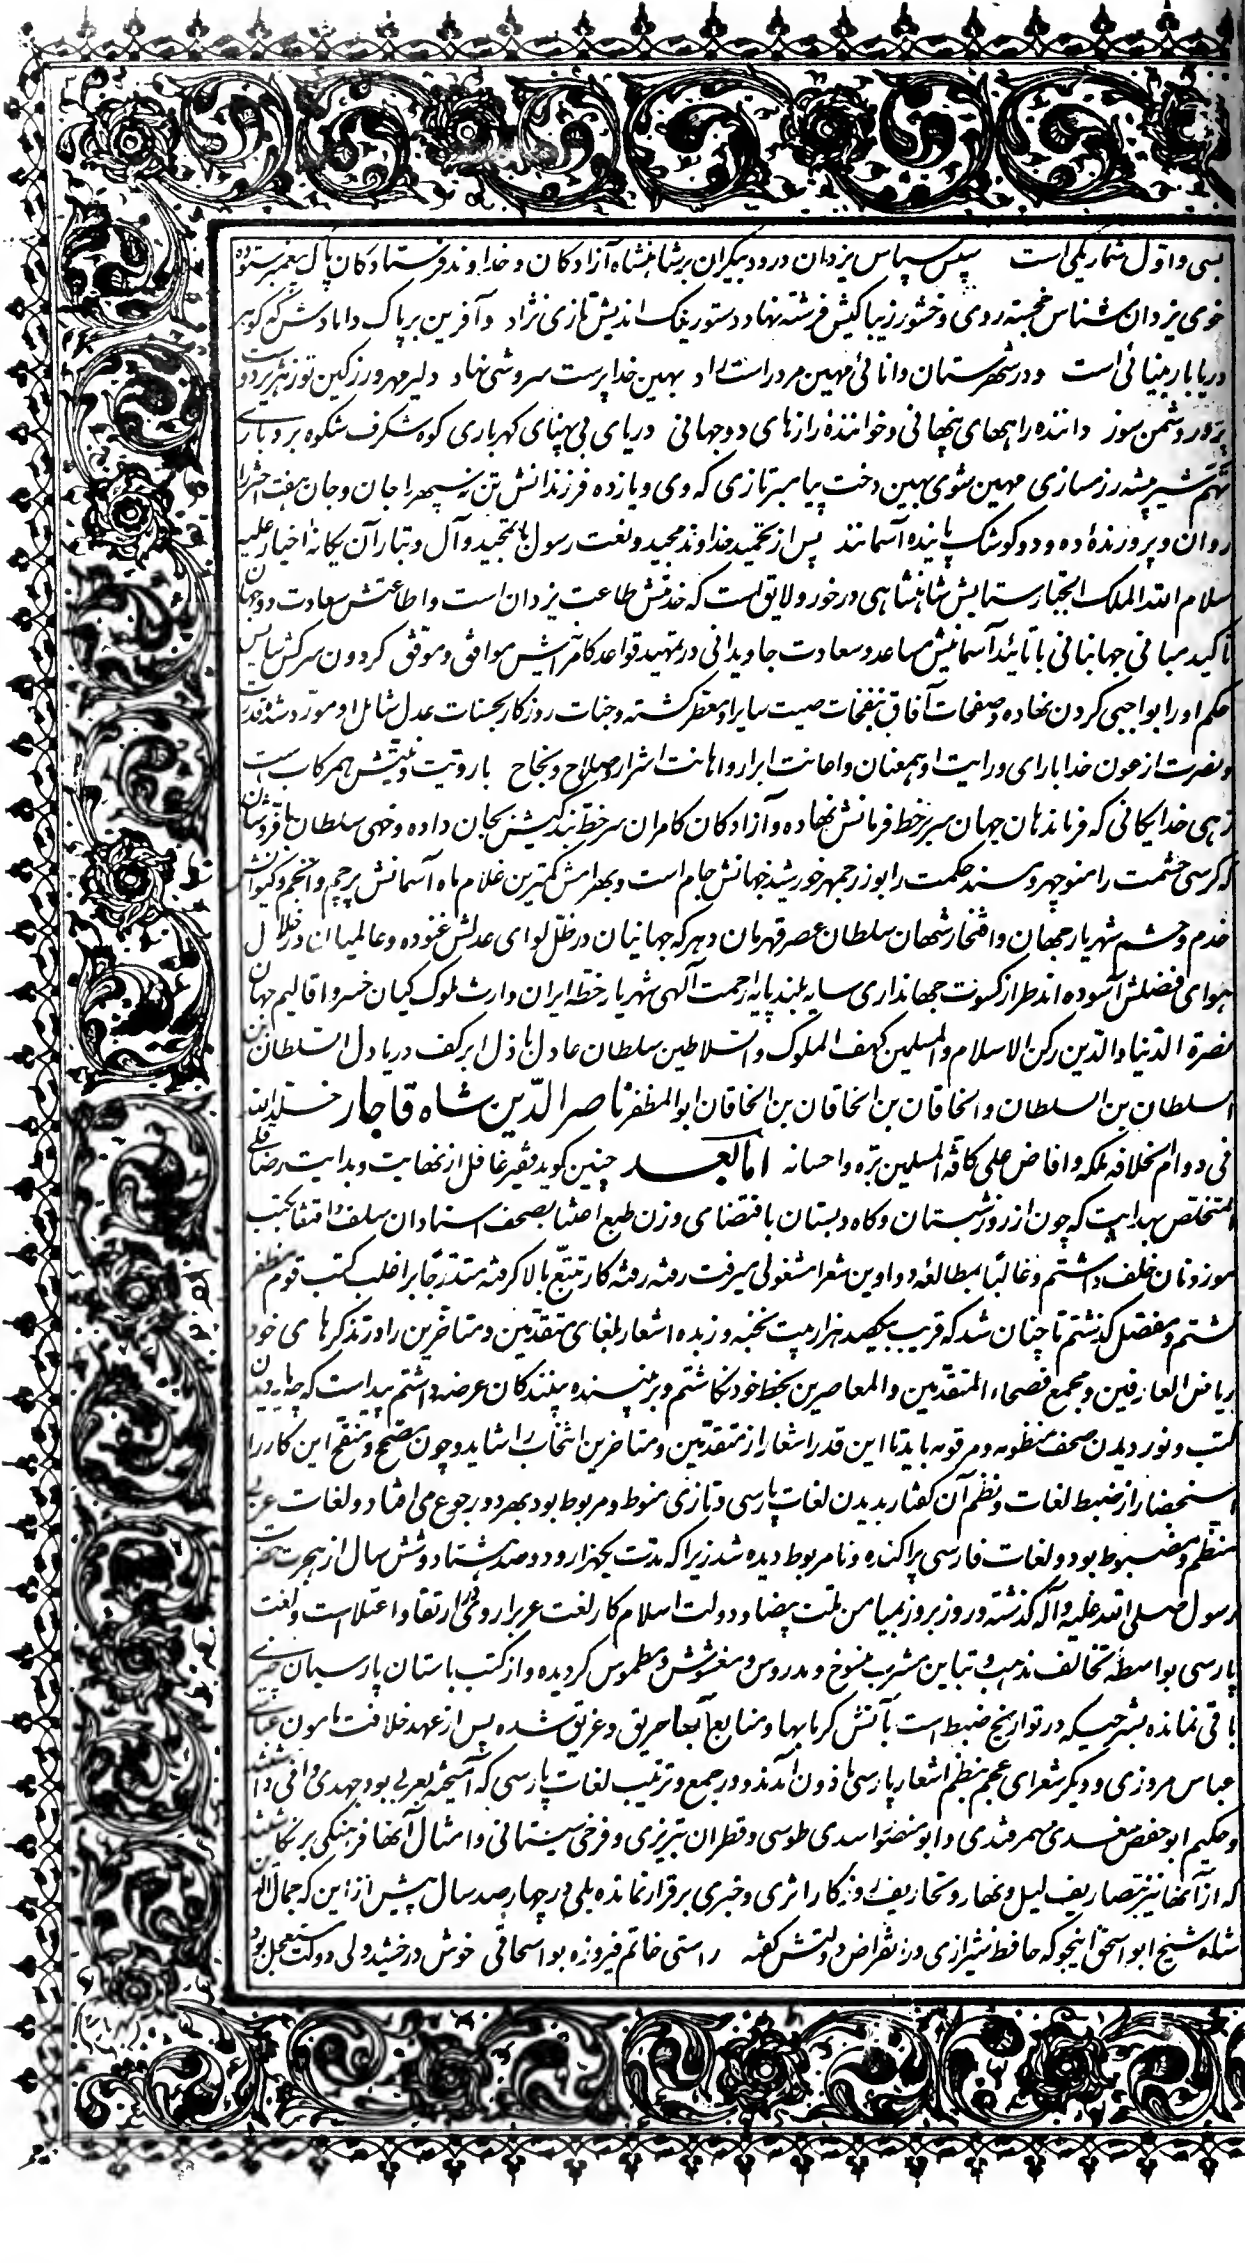 بسی و اول شمار یکی است پس سپاس یزدان درود بیکران بر شاهنشاه آزادکان و خداوند فرستادکان پاک پیغمبر ستوده
خوی یزدان شناس خجسته روی وخشور زیبا کیش فرشته نهاد دستور نیک اندیش تازی نژاد و آفرین بر پاک داماد ش که کوهر
دریا بار بینائی است و در شهرستان دانائی مهین مرد راست راد بهین خدا پرست سروشی نهاد دلیر مهر ورز کین توز هژبر دوست
پرور دشمن سوز داننده راههای پنهانی و خوانندۀ رازهای دو جهانی دریای بی پهنای کهر باری کوه شکرف شکوه بردباری
تهم شیر بیشه رزمسازی مهین شوی بهین دخت پیامبر تازی که وی و یازده فرزندانش تن نه سپهر را جان و جان هفت اختر را
روان و پروزندۀ ده و دو کوشک پاینده آسمانند پس از تحمید خداوند مجید و نعت رسول با تمجید و آل و تبار آن یکانه اخیار علیه
سلام الله الملک الجبار ستایش شاهنشاهی در خور و لایق است که خدمتش طاعت یزدان است و اطاعتش سعادت دو جهان
تاکید مبانی جهانبانی با تائید آسمانیش مساعد و سعادت جاویدانی در تمهید قواعد کامرانیش موافق و موفق کردون سرکش سایس
حکم او را بواجبی کردن نهاده و صفحات آفاق بنفحات صیت سایر او معطر کشته و جنات روزکار بحسنات عدل شامل او مورد شده قدرت
و نصرت از عون خدا با رای و رایت او همعنان و اعانت ابرار و اهانت اشرار و صلاح و نجاح با رویت و نیتش همرکاب است
زهی خدایکانی که فرماندهان جهان سر بر خط فرمانش نهاده و آزادکان کامران سر خط بندکیش بجان داده و خهی سلطان با فر و شان
که کرسی حشمت را منوچهر و مسند حکمت را بوزرجمهر خورشید جهانش جام است و بهرامش کمترین غلام ماه آسمانش پرچم و انجم و کیوانش
خدم و حشم شهریار جهان و افتخار شهان سلطان عصر قهرمان دهر که جهانیان در ظل لوای عدلش غنوده و عالمیان در خلال
هوای فضلش آسوده اند طراز کسوت جهانداری سایه بلند پایه رحمت آلهی شهریار خطه ایران وارث ملوک کیان خسرو اقالیم جهان
نصرة الدنیا والدین رکن الاسلام والمسلمین کهف الملوک والسلاطین سلطان عادل باذل ابر کف دریا دل السلطان بن
السلطان بن السلطان و الخاقان بن الخاقان بن الخاقان ابو المظفر ناصر الدین شاه قاجار خلد الله
فی دوام الخلافه ملکه و افاض علی کافة المسلمین بره و احسانه اما بعد چنین کوید فقیر غافل از نهایت و بدایت رضا قلی
المتخلص بهدایت که چون از روز شبستان و کاه دبستان باقتضای وزن طبع اعتنا بصحف استادان سلف و اقتفا بکتب
موزونان خلف داشتم و غالبا بمطالعه دواوین شعرا مشغولی میرفت رفته رفته کار تتبع بالا کرفته متدرجا بر اغلب کتب قوم مظفر
کشتم و مفصل کذشتم تا چنان شد که قریب بیکصد هزار بیت نخبه و زبده اشعار بلغای متقدمین و متاخرین را در تذکرهای خود
ریاض العارفین و مجمع فصحاء المتقدمین و المعاصرین بخط خود نکاشتم و بر پسنده بینندکان عرضه داشتم پیداست که چه مایه دیدن
کتب و نوردیدن صحف منظومه و مرقومه باید تا این قدر اشعار از متقدمین و متاخرین انتخاب را شاید و چون تصحیح و تنقیح این کار را
استحضار از ضبط لغات و نظم آن کفتار بدیدن لغات پارسی و تازی منوط و مربوط بود بهر دو رجوع می افتاد و لغات عربی
منظم و مضبوط بود و لغات فارسی پراکنده و نامربوط دیده شد زیرا که مدت یکهزار و دو صد و هشتاد و شش سال از هجرت حضرت
رسول صلی الله علیه و آله کذشته و روز بروز بمیامن ملت بیضا و دولت اسلام کار لغت عرب را روی در ارتقا و اعتلاست و لغت
پارسی بواسطه تخالف مذهب و تباین مشرب منسوخ و مدروس و مغشوش و مطموس کردیده و از کتب باستان پارسیان چیزی
باقی نمانده بشرحیکه در تواریخ ضبط است بآتش کرمابها و منابع آبها حریق و غریق شده پس از عهد خلافت مامون عباسی
عباس مروزی و دیکر شعرای عجم بنظم اشعار پارسی ماذون آمدند و در جمع و ترتیب لغات پارسی که آمیخته بعربی بود جهدی وافی داشتند
و حکیم ابو حفص سغدی سمرقندی و ابو منصور اسدی طوسی و قطران تبریزی و فرخی سیستانی و امثال آنها فرهنکی برنکاشتند
که از آنها نیز بتصاریف لیل و نهار و تحاریف روزکار اثری و خبری برقرار نمانده بلی در چهار صد سال پیش از این که جمال الدین
شاه شیخ ابو اسحق اینجو که حافظ شیرازی در انقراض دولتش کفته راستی خاتم فیروزه بو اسحاقی خوش درخشید ولی دولت مستعجل بود